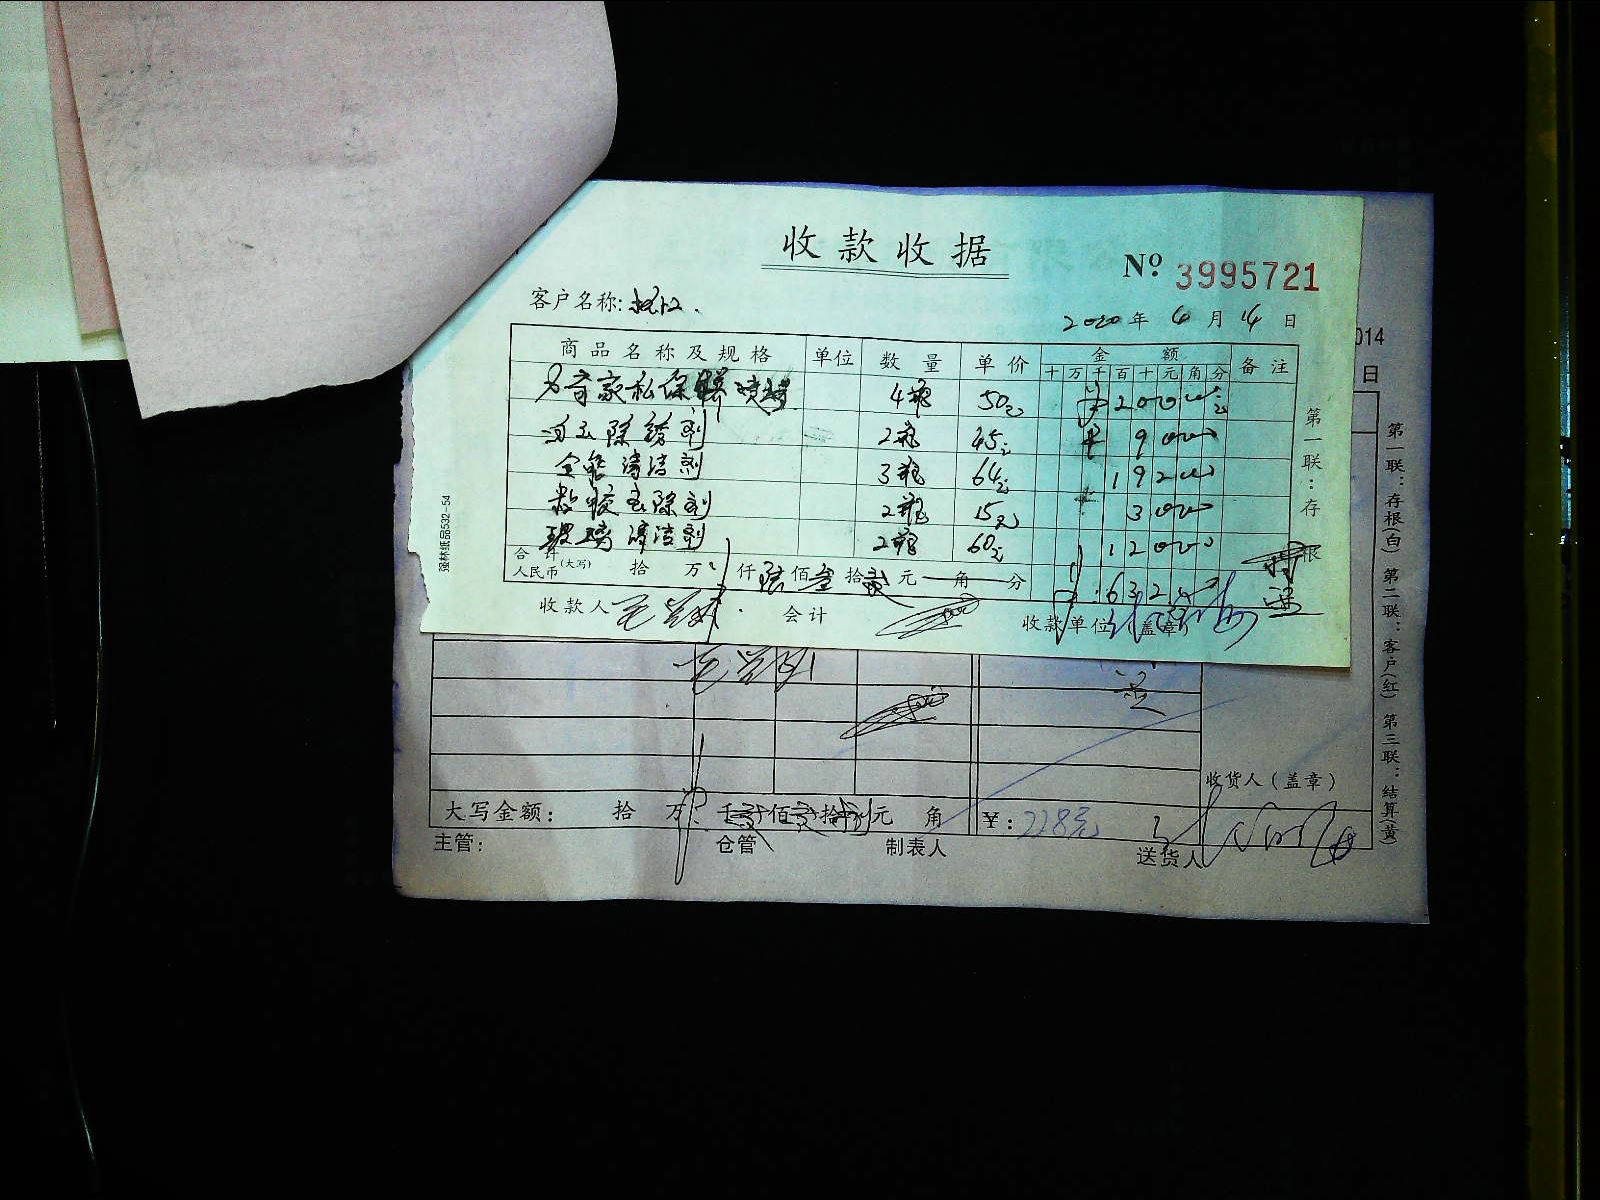 收款收据
№ 3995721
客户名称:
2020年 6月 14日
商品名称及规格 单位 数量 单价 金额 备注
十万千百十元角分
家私保 喷 4瓶 50元 20000
除锈剂 2瓶 45元 9000
全能清洁剂 3瓶 64元 19200
除剂 2瓶 15元 3000
玻璃清洁剂 2瓶 60元 12000
合计人民币(大写) 拾 万 仟 陆佰叁拾贰元 角 分 632
收款人 会计 收款单位(盖章)
第一联:存根
强林纸品532-54
014
日
第一联:存根(白) 第二联:客户(红) 第三联:结算(黄)
收货人(盖章)
大写金额: 拾 万 仟 佰 拾 元 角 ¥:228元
主管: 仓管 制表人 送货人